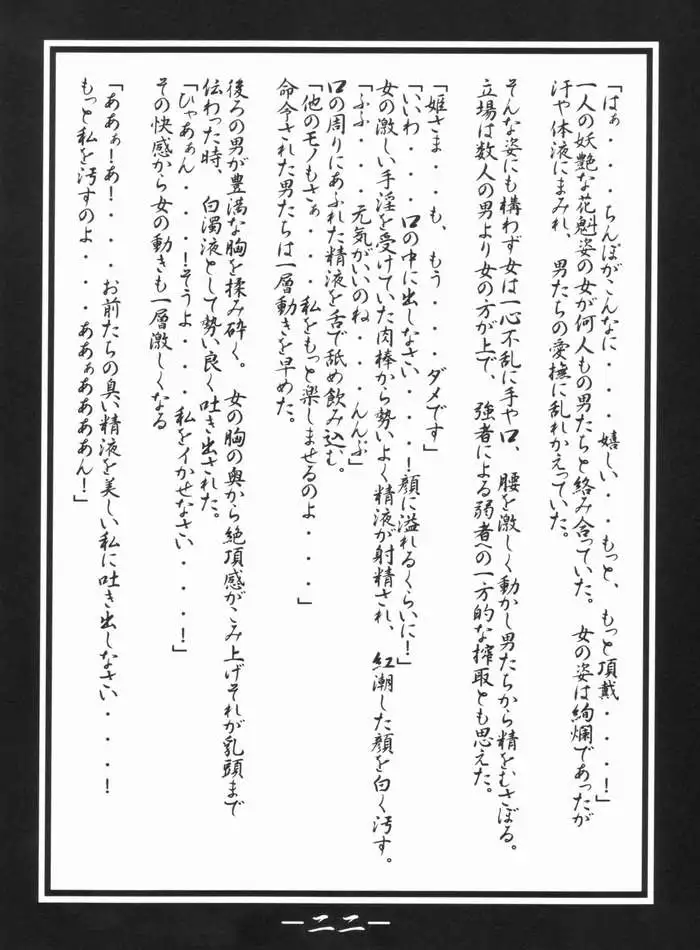 「はぁ・・・ちんぽがこんなに・・・嬉しい・・もっと、もっと頂戴・・・！」
一人の妖艶な花魁姿の女が何人もの男たちと絡み合っていた。　女の姿は絢爛であったが
汗や体液にまみれ、　男たちの愛撫に乱れかえっていた。
そんな姿にも構わず女は一心不乱に手や口、　腰を激しく動かし男たちから精をむさぼる。
立場は数人の男より女の方が上で、　強者による弱者への一方的な搾取とも思えた。
「姫さま・・も、もう・・・ダメです」
「いいわ・・・口の中に出しなさい・・・！顔に溢れるくらいに！」
女の激しい手淫を受けていた肉棒から勢いよく精液が射精され、　紅潮した顔を白く汚す。
「ふふ・・・元気がいいのね・・・んんぷ」
口の周りにあふれた精液を舌で舐め飲み込む。
「他のモノもさぁ・・・私をもっと楽しませるのよ・・・」
命令された男たちは一層動きを早めた。
後ろの男が豊満な胸を揉み砕く。　女の胸の奥から絶頂感がこみ上げそれが乳頭まで
伝わった時、　白濁液として勢い良く吐き出された。
「ひゃあぁん・・・！そうよ・・・私をイかせなさい・・・！」
その快感から女の動きも一層激しくなる
「ああぁ！あ！・・・お前たちの臭い精液を美しい私に吐き出しなさい・・・！
もっと私を汚すのよ・・・ああぁああああん！」
―二二―